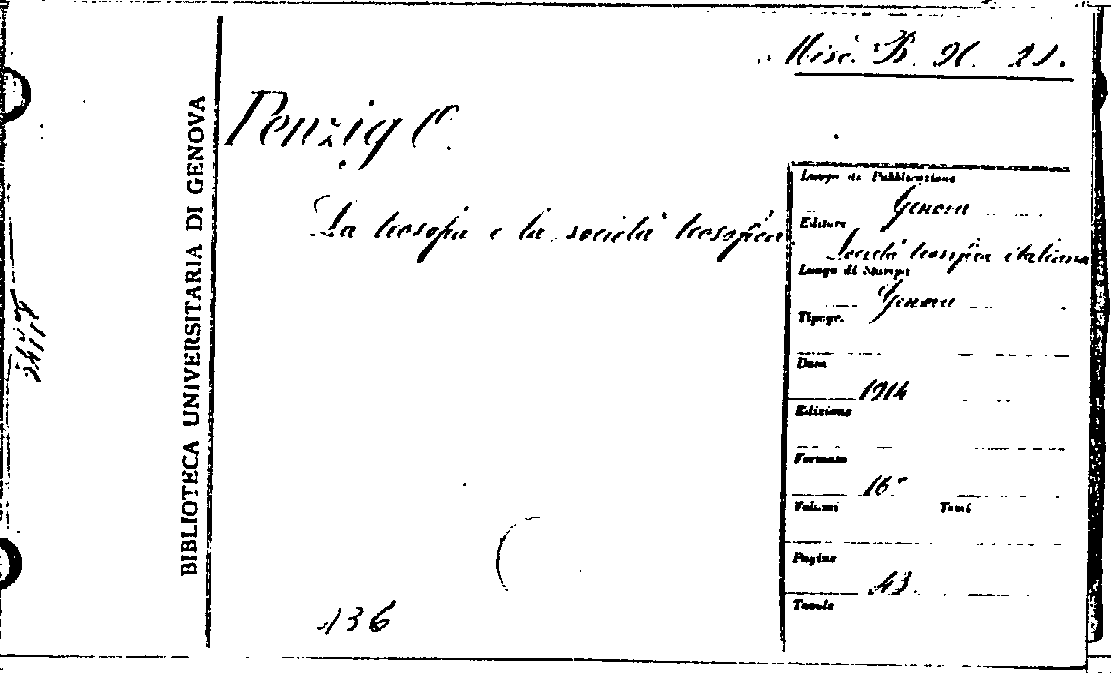 Misc. B. 21.
Penzig O.
BIBLIOTECA UNIVERSITARIA DI GENOVA
La teosofia e la società teosofica
Luogo di Pubblicazione
Genova
Editore
Società teosofica italiana
Luogo di Stampa
Genova
Tipogr.
Data
1914
Edizione
Formato
16°
Volumi Tomi
Pagine
43.
Tavole
136